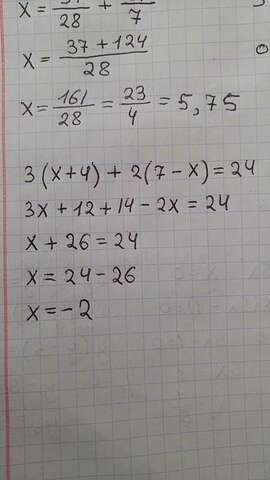 x = /28 + /7
x = 37 + 124/28
x = 161/28 = 23/4 = 5,75
3(x+4) + 2(7-x) = 24
3x + 12 + 14 - 2x = 24
x + 26 = 24
x = 24 - 26
x = -2